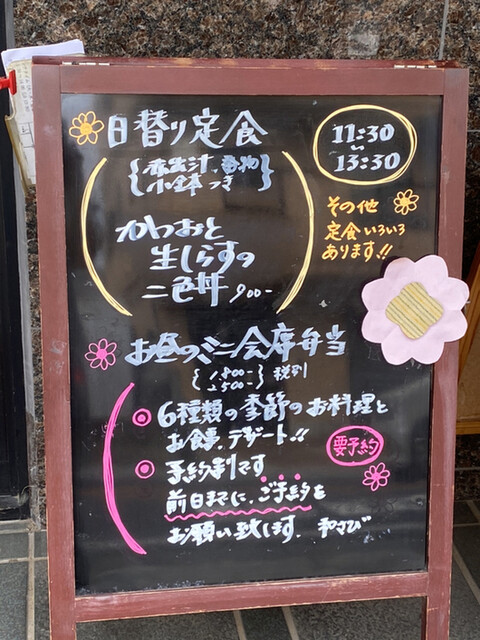 日替り定食
11:30
〜
13:30
{赤出汁、香物
小鉢つき}
その他
定食いろいろ
あります!!
かつおと
生しらすの
二色丼 900-
お昼のミニ会席弁当
{1800-
2500-} 税別
◎6種類の季節のお料理と
お食事、デザート!!
要予約
◎予約制です
前日までに、ご予約を
お願い致します。わさび